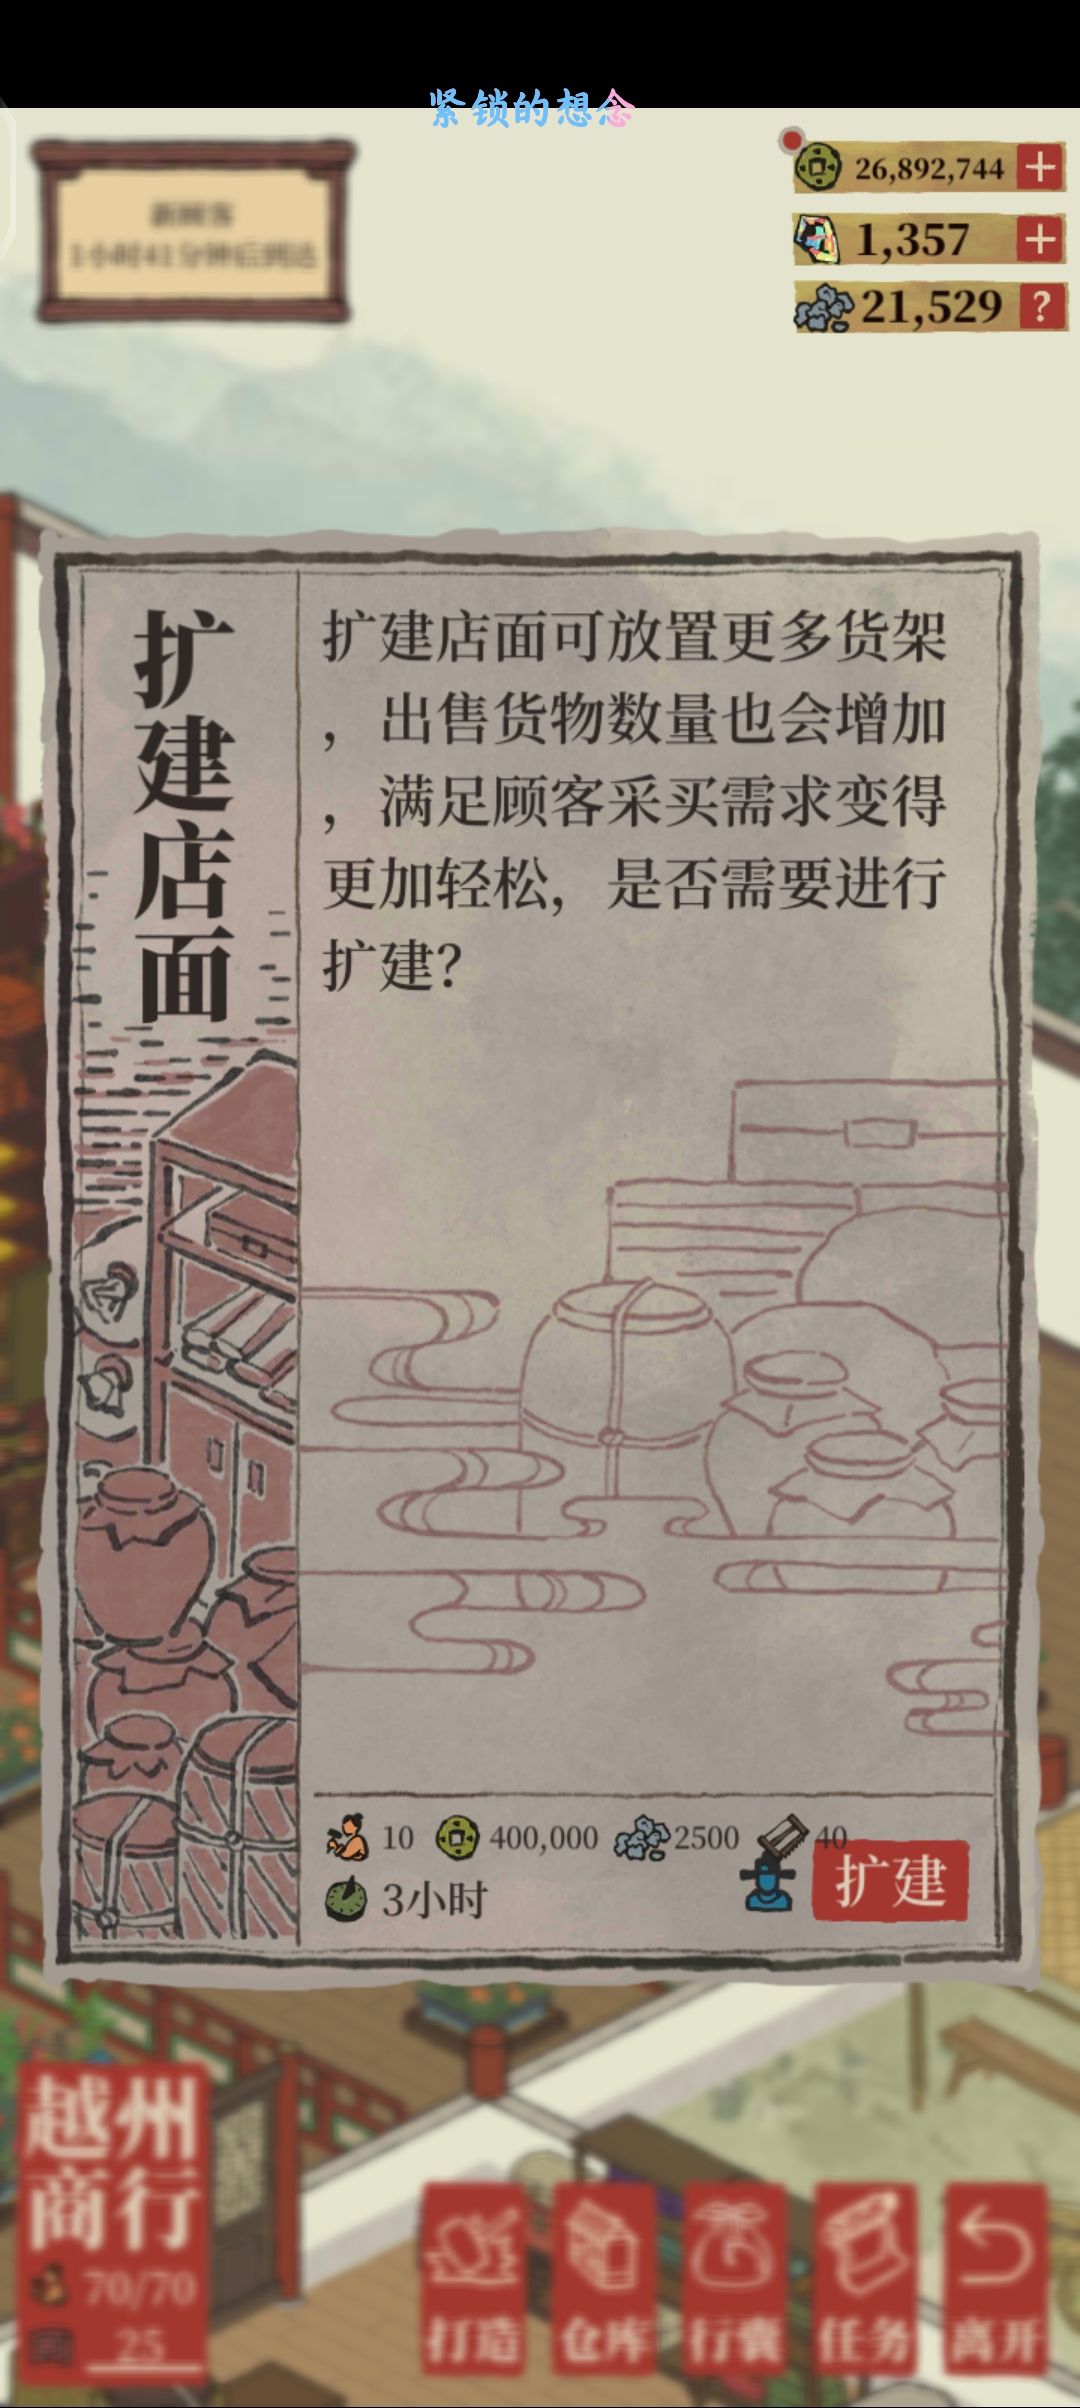 紧锁的想念
新顾客
1小时41分钟后到达
26,892,744
1,357
21,529
?
扩建店面
扩建店面可放置更多货架
，出售货物数量也会增加
，满足顾客采买需求变得
更加轻松，是否需要进行
扩建？
10 400,000 2500 40
3小时
扩建
越州
商行
70/70
25
打造 仓库 行囊 任务 离开